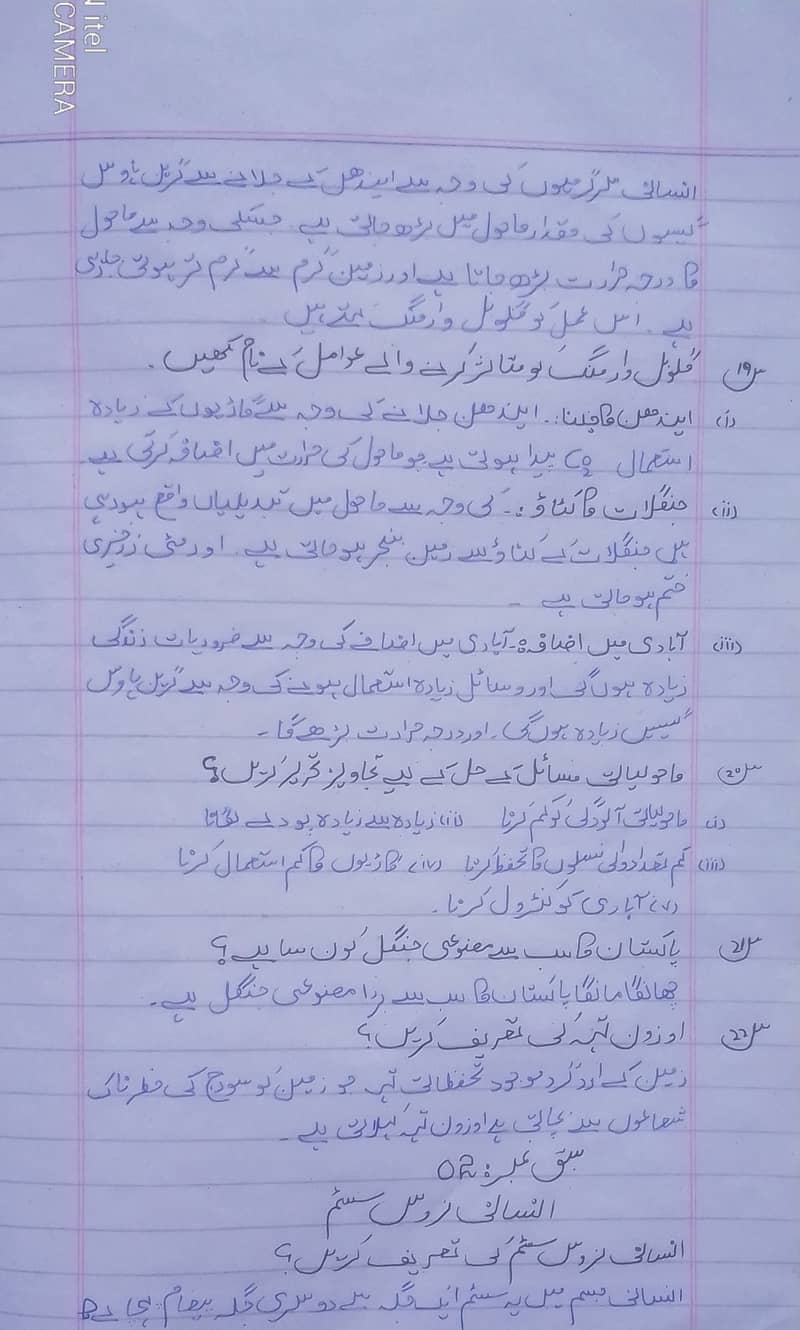 N itel
CAMERA
انسانی سرگرمیوں کی وجہ سے ایندھن کے جلانے سے گرین ہاوس
گیسوں کی مقدار ماحول میں بڑھ جاتی ہے جسکی وجہ سے ماحول
کا درجہ حرارت بڑھ جاتا ہے اور زمین گرم سے گرم تر ہوتی جارہی
ہے۔ اس عمل کو گلوبل وارمنگ کہتے ہیں۔
س19) گلوبل وارمنگ کو متاثر کرنے والے عوامل کے نام لکھیں۔
(i) ایندھن کا جلنا:۔ ایندھن جلانے کی وجہ سے گاڑیوں کے زیادہ
استعمال CO2 پیدا ہوتی ہے جو ماحول کی حرارت میں اضافہ کرتی ہے
(ii) جنگلات کا کٹاؤ:۔ کی وجہ سے ماحول میں تبدیلیاں واقع ہورہی
ہیں جنگلات کے کٹاؤ سے زمین بنجر ہوجاتی ہے۔ اور مٹی زرخیزی
ختم ہوجاتی ہے۔
(iii) آبادی میں اضافہ:۔ آبادی میں اضافے کی وجہ سے ضروریات زندگی
زیادہ ہوں گی اور وسائل زیادہ استعمال ہونے کی وجہ سے گرین ہاوس
گیسیں زیادہ ہوں گی۔ اور درجہ حرارت بڑھے گا۔
س20) ماحولیاتی مسائل کے حل کے لیے تجاویز تحریر کریں؟
(i) ماحولیاتی آلودگی کو کم کرنا (ii) زیادہ سے زیادہ پودے لگانا
(iii) کم تعداد والی نسلوں کا تحفظ کرنا (iv) گاڑیوں کا کم استعمال کرنا
(v) آبادی کو کنٹرول کرنا۔
س21) پاکستان کا سب سے مصنوعی جنگل کون سا ہے؟
چھانگا مانگا پاکستان کا سب سے بڑا مصنوعی جنگل ہے۔
س22) اوزون تہہ کی تعریف کریں؟
زمین کے اردگرد موجود تحفظاتی تہہ جو زمین کو سورج کی خطرناک
شعاعوں سے بچاتی ہے اوزون تہہ کہلاتی ہے۔
سبق نمبر: 02
انسانی نروس سسٹم
انسانی نروس سسٹم کی تعریف کریں؟
انسانی جسم میں یہ سسٹم ایک جگہ سے دوسری جگہ پیغام